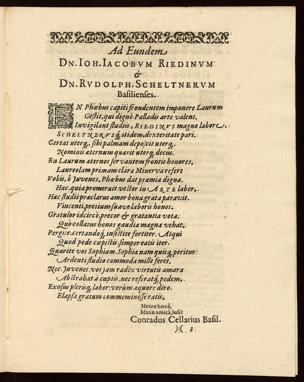 Ad Eundem
DN. IOH. IACOBVM RIEDINVM
&
DN. RVDOLPH. SCHELTNERVM
Basilienses.
EN Phœbus capiti frondentem imponere Laurum
Gestit, qui dignè Palladis arte valent.
Invigilans studiis, RIEDINVS magno labore,
SCHELTNERVSq́; itidem, dexteritate pari.
Certat uterq́; sibi palmam deposcit uterq́;
Nominis æternum quærit uterq́; decus.
En Lauream æternos servantem frontis honores,
Laureolam primam clara Minerva refert
Vobis, ô Juvenes, Phœbus dat præmia digna.
Hac quia promeruit vester in ARTE labor.
Hac studii præclarus amor bona grata paravit.
Vincenti, pretium suave laboris honos.
Gratulor idcircò, precor & gratantia vota:
Quò collatus honos gaudia magna vehat.
Pergite certandoq́; insistite fortiter. Atqui
Quod pede cæpistis semper eatis iter.
Quærite vos Sophiam, Sophia nam quiq́; peritur
Ardenti studio commoda mille feret.
Nec Juvenes vos jam radix virtutis amara
Abstrahat à cæptis, nec referatq́; pedem.
Exosus pleriq́; labor; verùm æquore diro.
Elapsis gratum commeminisse ratis.
Mente bonâ,
Manu amicâ, lusit
Conradus Cellarius Basil.